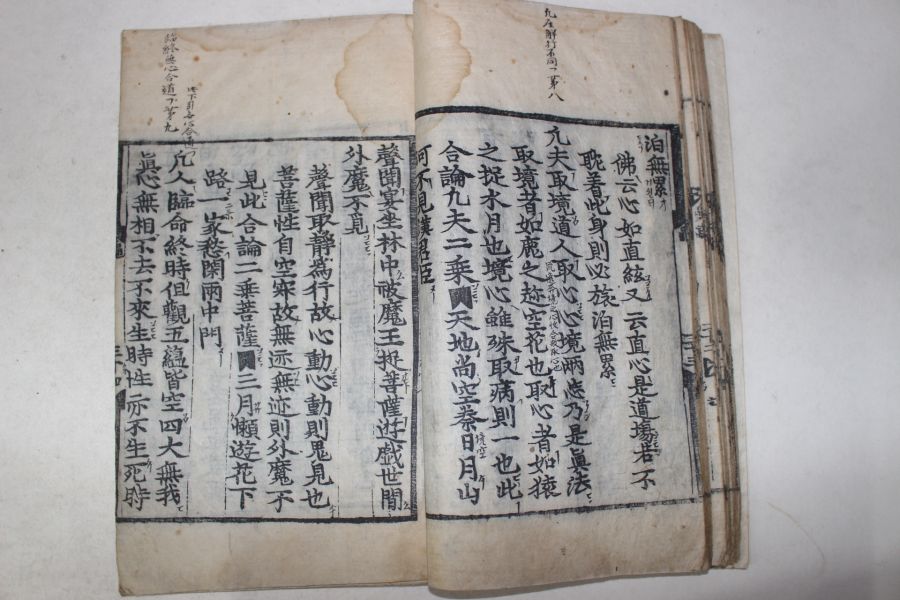 泊無累
佛云心如直絃又云直心是道塲若不
耽著此身則必旅泊無累
凢夫取境道人取心心境兩忘乃是眞法
取境者如鹿之趂空花也取心者如猿
之捉水月也境心雖殊取病則一也此
合論凢夫二乘天地尚空秦日月山
河不見漢君臣
臨終無心合道下第九
聲聞宴坐林中破魔王捉菩薩遊戱世間
外魔不覓
聲聞取静爲行故心動心動則鬼見也
菩薩性自空寂故無迹無迹則外魔不
見此合論二乘菩薩三月懶遊花下
路一家愁閉雨中門
凢人臨命終時但觀五蘊皆空四大無我
眞心無相不去不來生時性亦不生死時